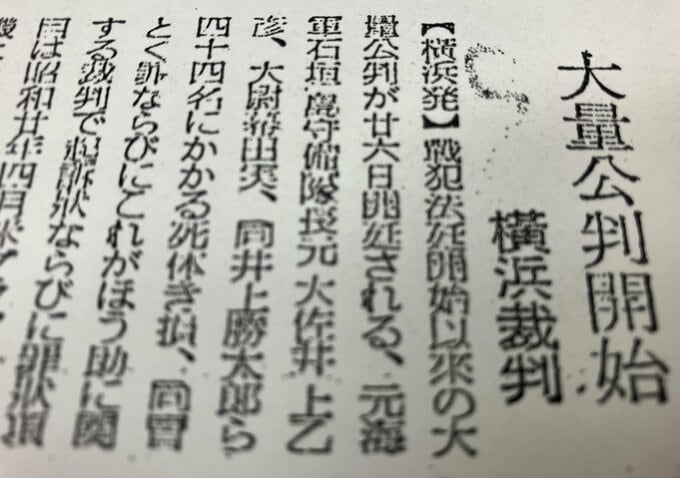 大量公判開始
橫浜裁判
【橫浜発】戰犯法廷開始以來の大
量公判が廿六日開廷される、元海
軍石垣島守備隊長元大佐井上乙
彦、大尉幕田実、同井上勝太郎ら
四十四名にかかる死体き損、同冒
とく罪ならびにこれがほう助に関
する裁判で起訴状ならびに罪状項
目は昭和廿年四月米